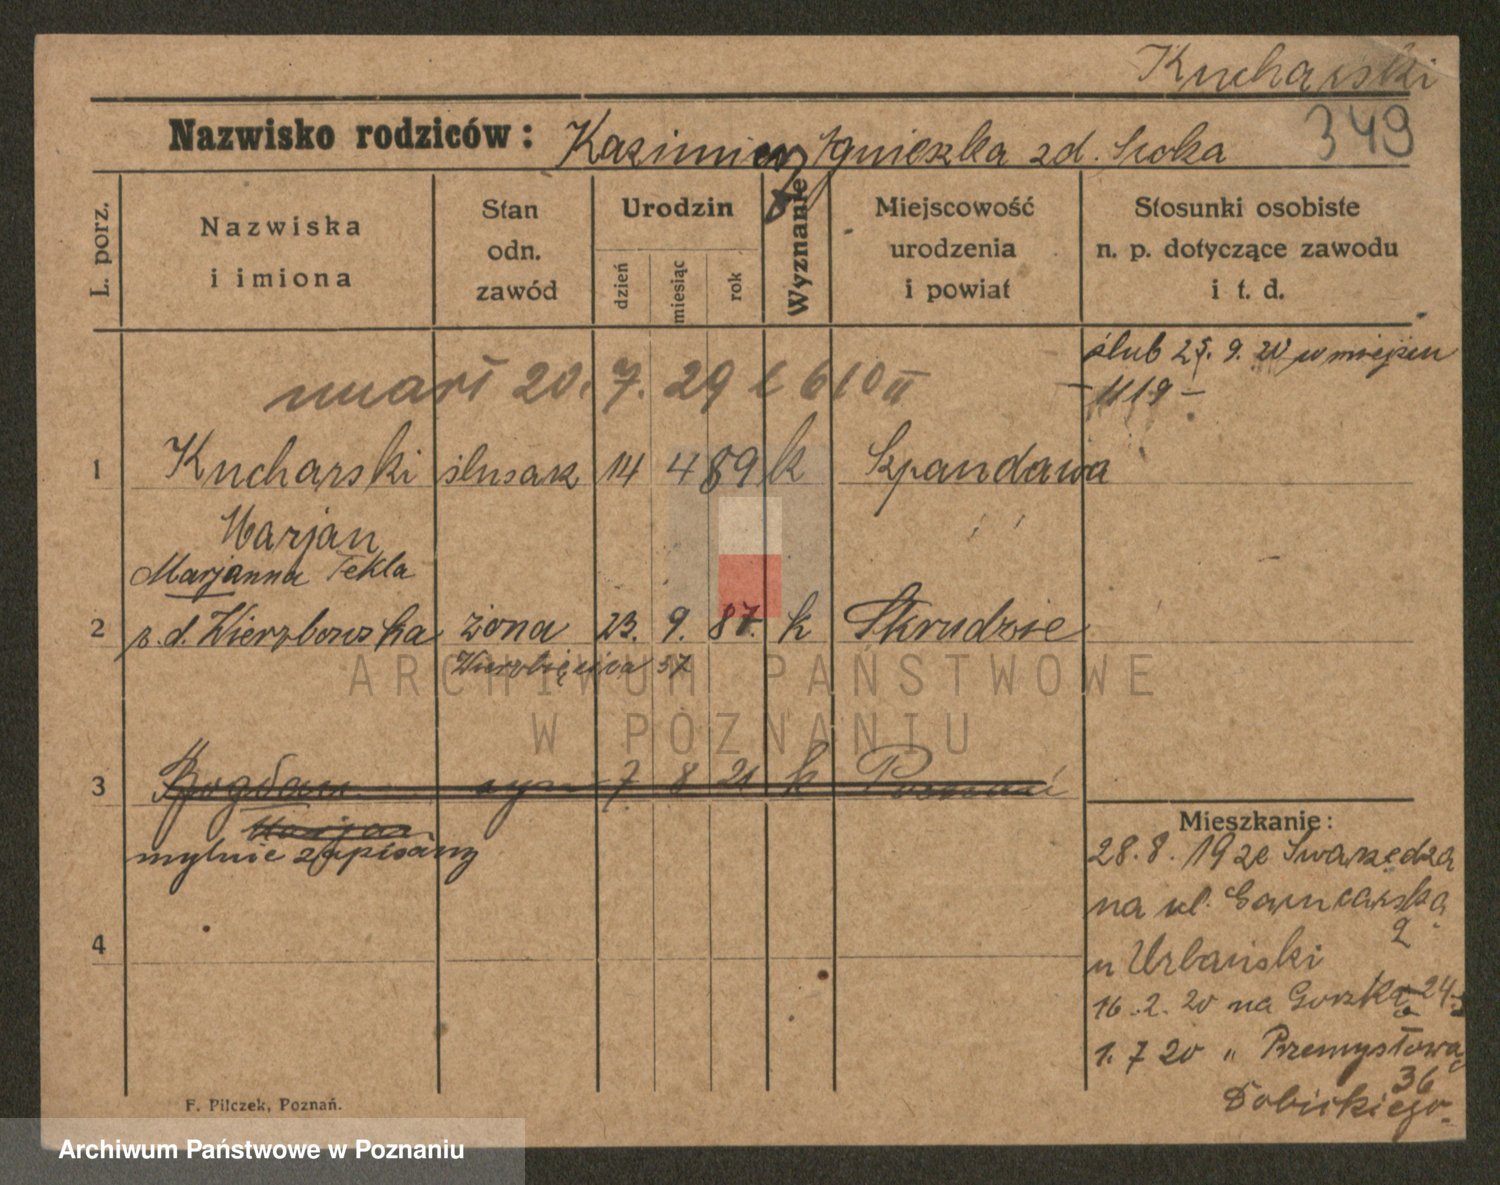 Kucharski
Nazwisko rodziców: Kazimierz Agnieszka zd. Sroka
349
L. porz.
Nazwiska
i imiona
Stan
odn.
zawód
Urodzin
dzień
miesiąc
rok
Wyznanie
Miejscowość
urodzenia
i powiat
Stosunki osobiste
n. p. dotyczące zawodu
i t. d.
ślub 25. 9. 20 w miejscu
1119 –
zmarł 20. 7. 29 610 II
1 Kucharski ślusarz 14 4 89 k Szpandawa
Marjan
Marjanna Tekla
2 z. d. Wierzbowska żona 23. 9. 87. k Skrudzie
Wierzbięcica 37
3 Bogdan syn 7 8 21 k Poznań
Marjan
mylnie zapisany
4
Mieszkanie:
28. 8. 19 ze Swarzędza
na ul. Garncarską
2
u Urbański
16. 2. 20 na Gorzką 24
1. 7 20 „ Przemysłową
36
F. Pilczek, Poznań.
ARCHIWUM PAŃSTWOWE
W POZNANIU
Archiwum Państwowe w Poznaniu